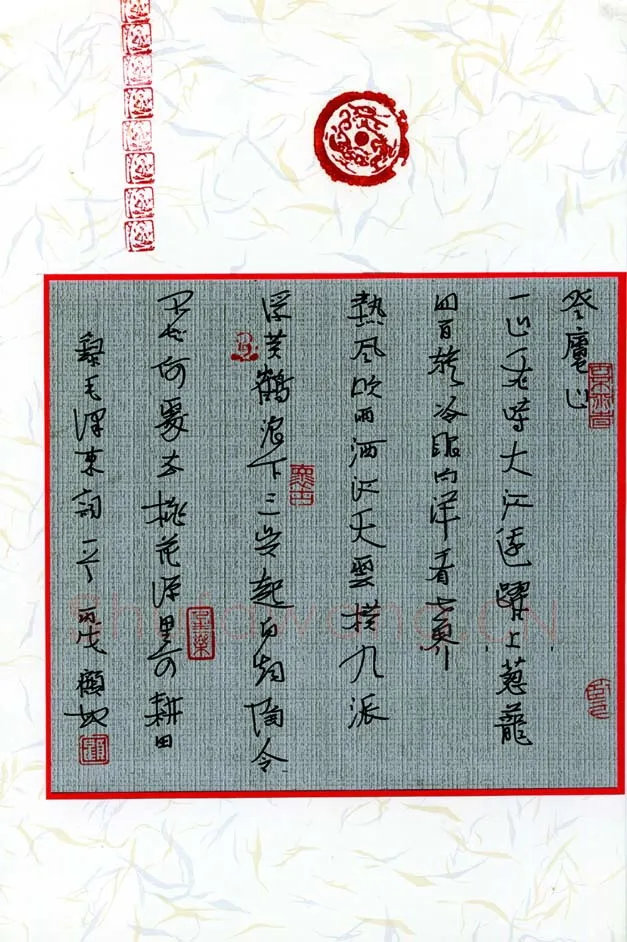 登廬山
一山飛峙大江邊躍上蔥龍
四百旋冷眼向洋看世界
熱風吹雨洒江天雲橫九派
浮黃鶴浪下三吳起白煙陶令
不知何處去桃花源里可耕田
錄毛澤東詞一首丙戌顧